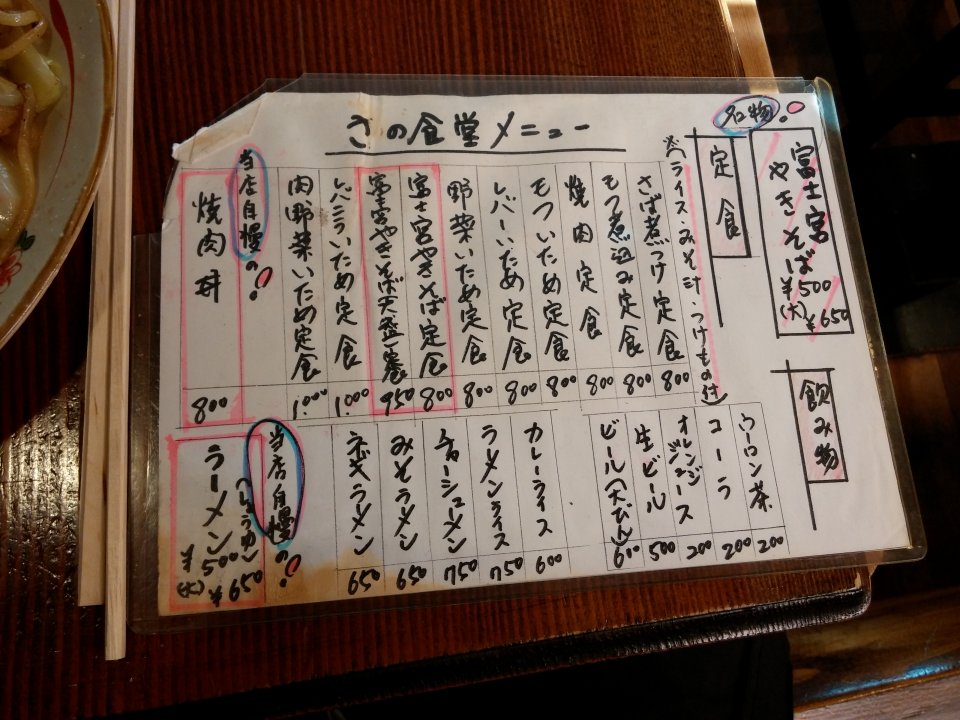 さの食堂メニュー
名物!
富士宮
やきそば ¥500
(大)¥650
定食
※(ライス・みそ汁・つけもの付)
さば煮つけ定食 800
もつ煮込み定食 800
焼肉定食 800
もついため定食 800
レバーいため定食 800
野菜いため定食 800
富士宮やきそば定食 800
富士宮やきそば天盛 950
レバニラいため定食 1000
肉野菜いため定食 1000
当店自慢の!
焼肉丼 800
飲み物
ウーロン茶 200
コーラ 200
オレンジジュース 200
生ビール 500
ビール(大びん) 600
カレーライス 600
ラーメンライス 750
チャーシューメン 750
みそラーメン 650
ネギラーメン 650
当店自慢!
ラーメン(しょうゆ)
¥500
(大)¥650